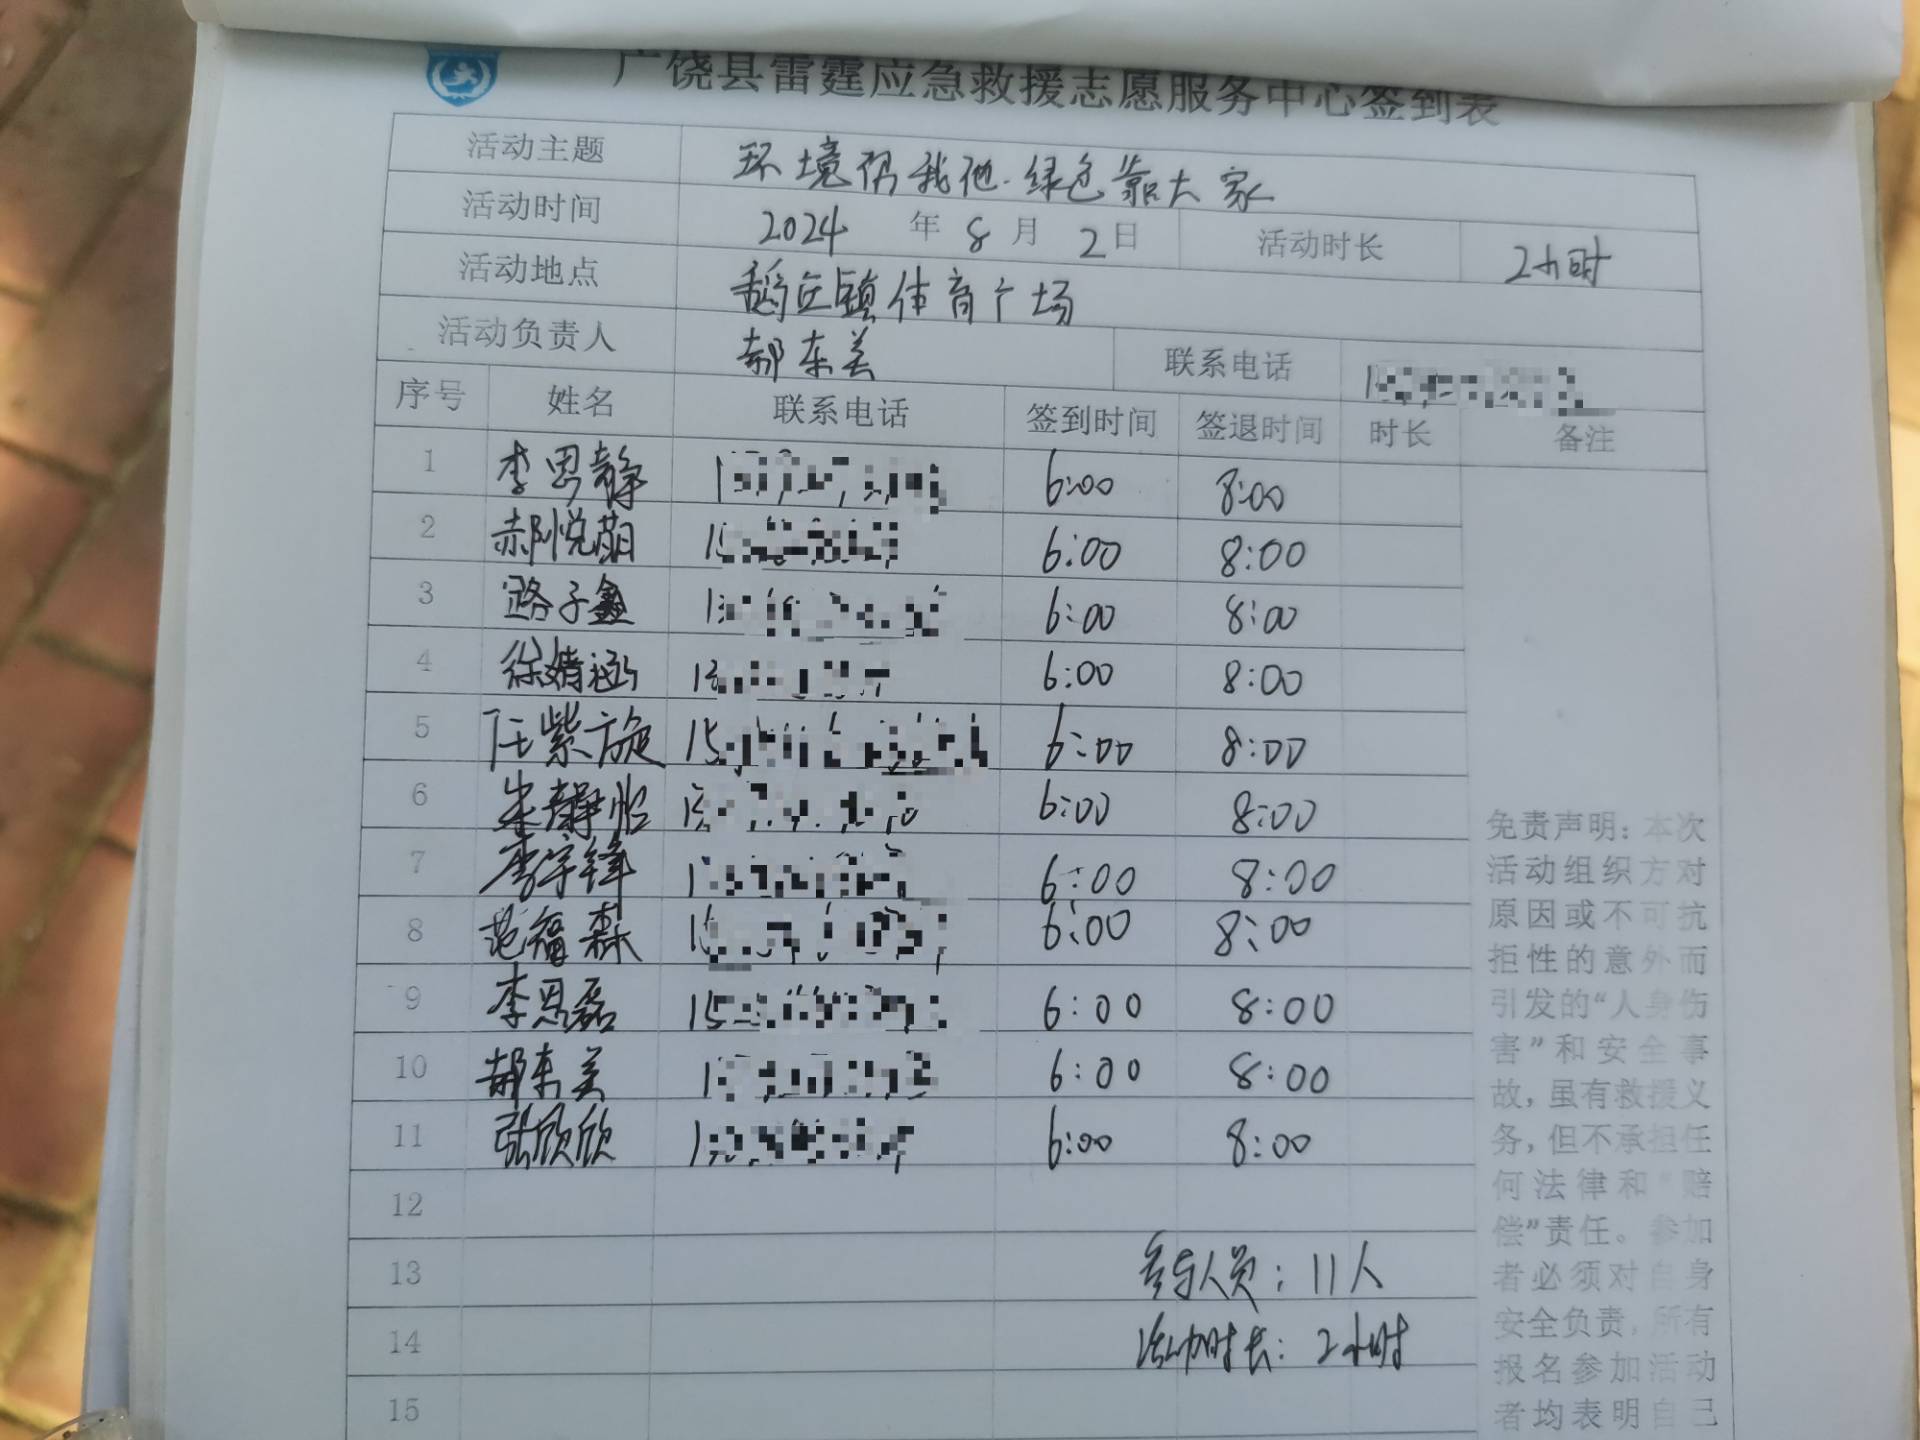 广饶县雷霆应急救援志愿服务中心签到表
活动主题 环境帮我他.绿色靠大家
活动时间 2024 年 8 月 2 日 活动时长 2小时
活动地点 稻庄镇体育广场
活动负责人 郝东美 联系电话
序号 姓名 联系电话 签到时间 签退时间 时长 备注
1 李思静 6:00 8:00
2 郝悦萌 6:00 8:00
3 路子鑫 6:00 8:00
4 徐婧涵 6:00 8:00
5 任紫旋 15 6:00 8:00
6 朱静怡 6:00 8:00
7 李宇锋 6:00 8:00
8 范福森 6:00 8:00
9 李思磊 15 6:00 8:00
10 郝东美 6:00 8:00
11 张欣欣 6:00 8:00
12
13 参与人员：11人
14 活动时长：2小时
15
免责声明：本次
活动组织方对
原因或不可抗
拒性的意外而
引发的“人身伤
害”和安全事
故，虽有救援义
务，但不承担任
何法律和“赔
偿”责任。参加
者必须对自身
安全负责，所有
报名参加活动
者均表明自己